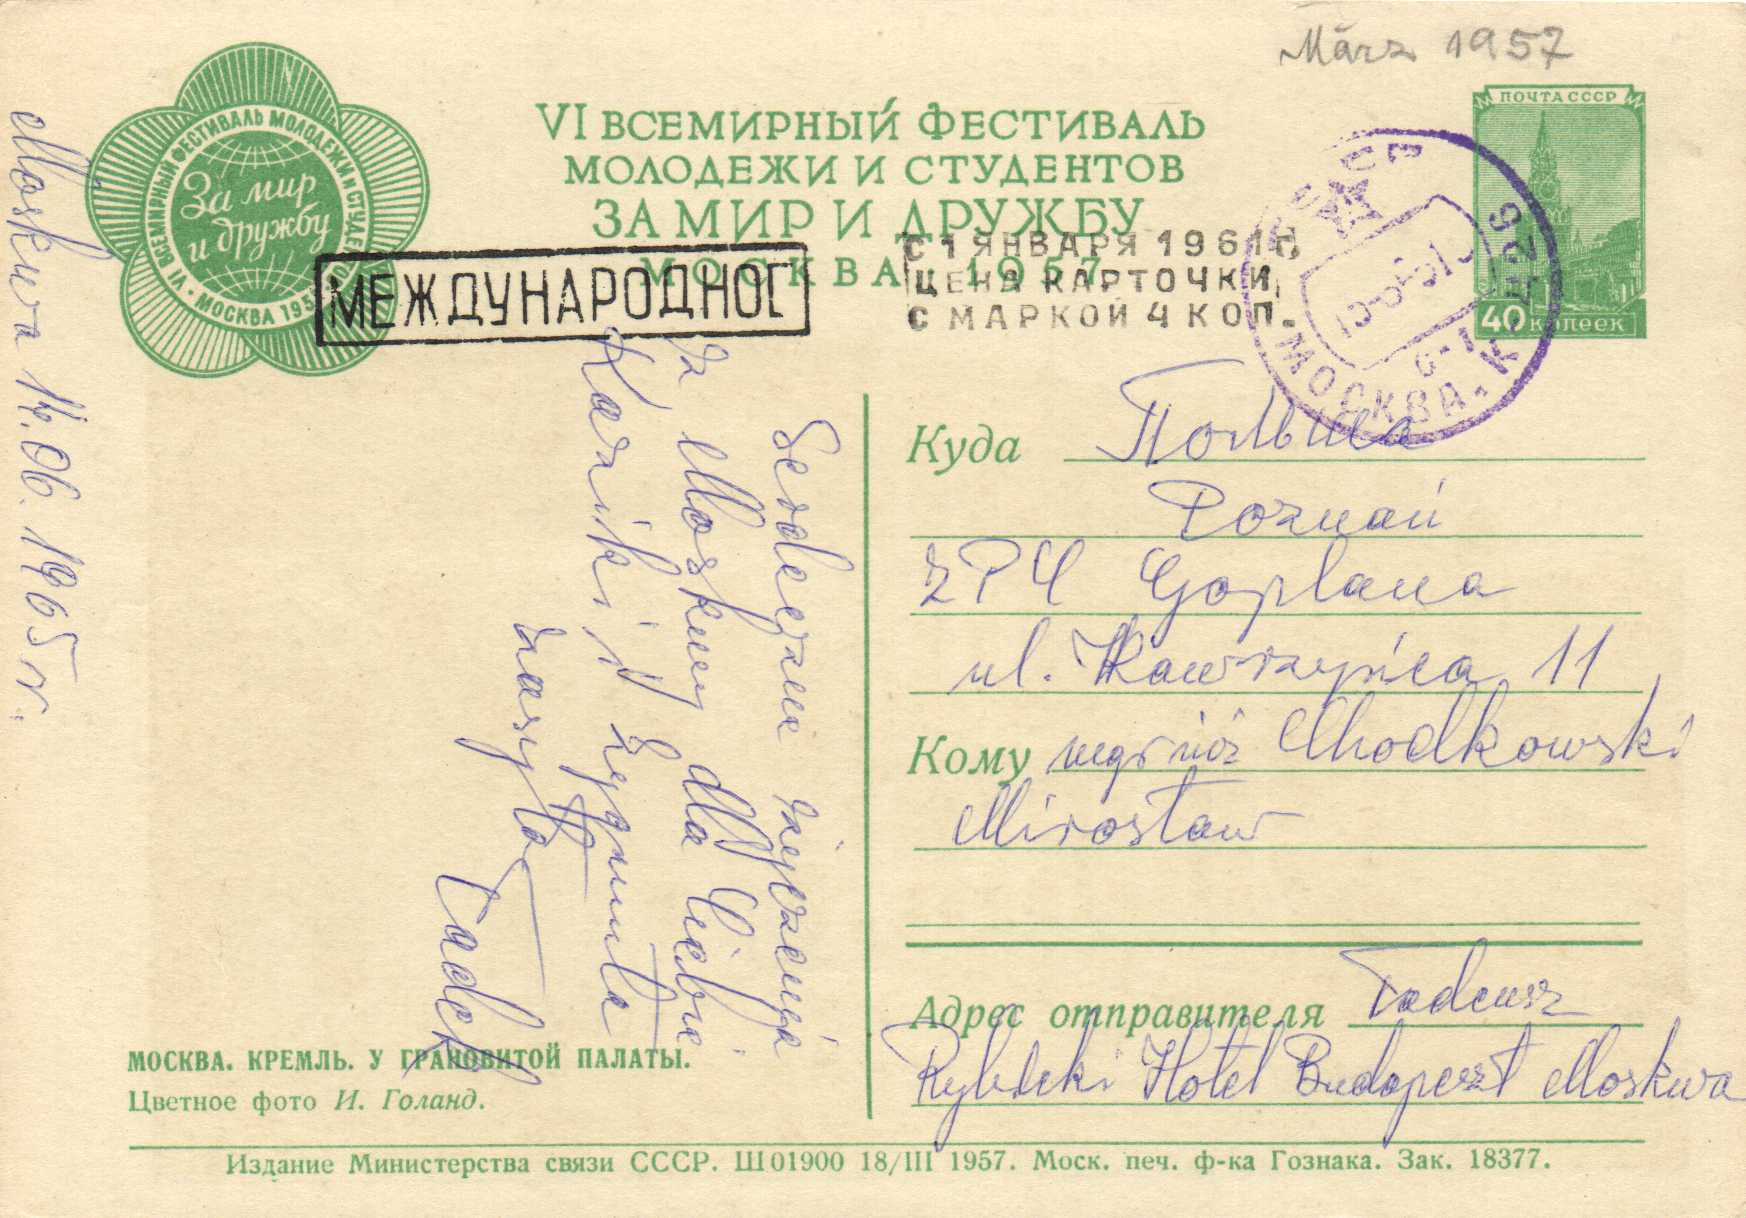 März 1957
ПОЧТА СССР
40 копеек
VI ВСЕМИРНЫЙ ФЕСТИВАЛЬ МОЛОДЕЖИ И СТУДЕ
МОСКВА 195
За мир
и дружбу
VI ВСЕМИРНЫЙ ФЕСТИВАЛЬ
МОЛОДЕЖИ И СТУДЕНТОВ
ЗА МИР И ДРУЖБУ
МОСКВА 1957
МЕЖДУНАРОДНОЕ
С 1 ЯНВАРЯ 1961 г.
ЦЕНА КАРТОЧКИ
С МАРКОЙ 4 КОП.
МОСКВА
Moskwa 14.06.1965 r.
Serdeczne
z Moskwy dla Ciebie
Kaziki i Zygmunta
zasyła
Tadek
Куда Польша
Poznań
ZPC Goplana
ul. Wawrzyńca 11
Кому mgr inż Chodkowski
Mirosław
Адрес отправителя Tadeusz
Rybicki Hotel Budapeszt Moskwa
МОСКВА. КРЕМЛЬ. У ГРАНОВИТОЙ ПАЛАТЫ.
Цветное фото И. Голанд.
Издание Министерства связи СССР. Ш01900 18/III 1957. Моск. печ. ф-ка Гознака. Зак. 18377.